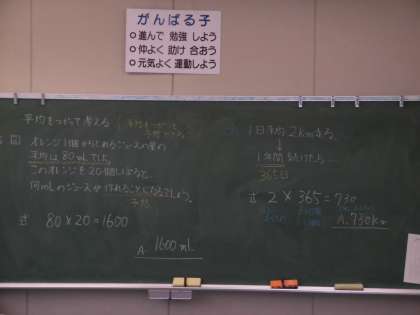 がんばる子
進んで 勉強 しよう
仲よく 助け 合おう
元気よく 運動しよう
平均をつかって考える
オレンジ1個からとれるジュースの量の
平均は80mLでした。
このオレンジを20個しぼると
何mLのジュースが作れることになるでしょう。
予想
式 80×20=1600
A. 1600mL
1日平均2km
↓
1年間続けたら
365日
式 2×365=730
A. 730km